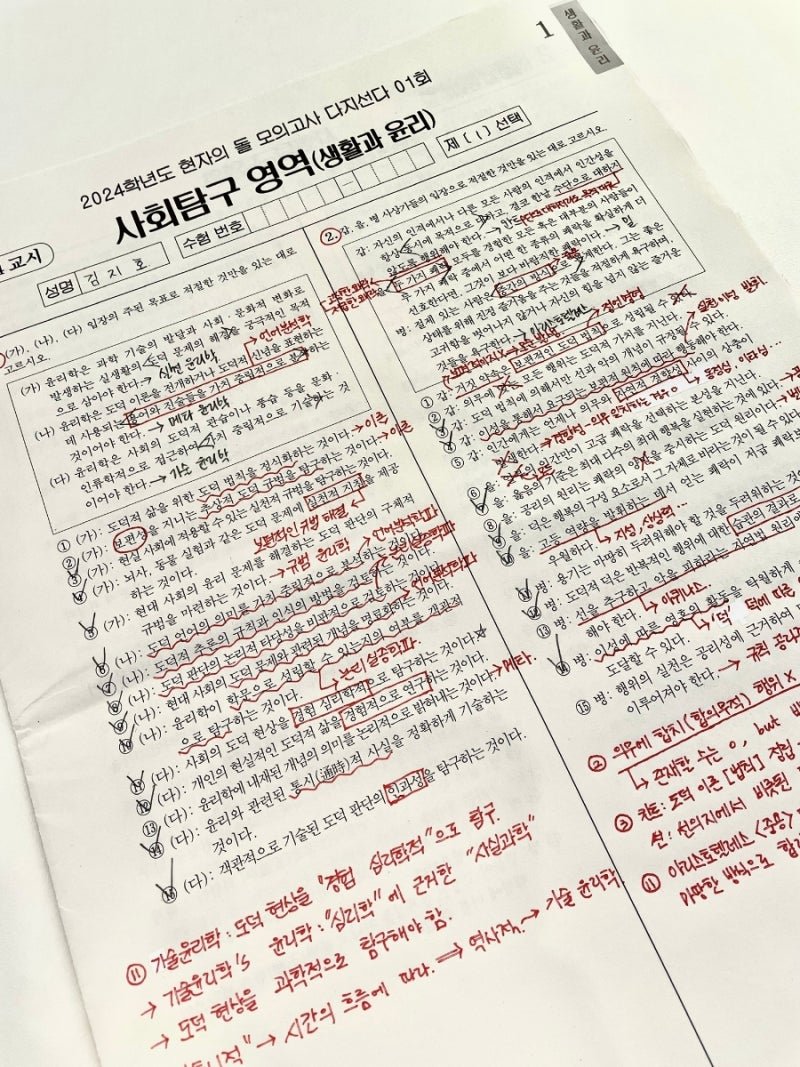 1
생활과 윤리
2024학년도 현자의 돌 모의고사 다지선다 01회
사회탐구 영역(생활과 윤리)
제 [ 1 ] 선택
교시
성명 김지호
수험 번호
(가), (나), (다) 입장의 주된 목표로 적절한 것만을 있는 대로
고르시오.
(가) 윤리학은 과학 기술의 발달과 사회·문화적 변화로
발생하는 실생활의 도덕 문제의 해결을 궁극적인 목적
으로 삼아야 한다. → 실천 윤리학
언어분석학
(나) 윤리학은 도덕 이론을 전개하거나 도덕적 신념을 표현하는
데 사용되는 용어와 진술들을 가치 중립적으로 분석하는
것이어야 한다. → 메타 윤리학
(다) 윤리학은 사회의 도덕적 관습이나 풍습 등을 문화
인류학적으로 접근하여 가치 중립적으로 기술하는 것
이어야 한다. → 기술 윤리학
① (가): 도덕적 삶을 위한 도덕 법칙을 정식화하는 것이다. → 이론
② (가): 보편성을 지니는 추상적 도덕 규범을 탐구하는 것이다. → 이론
③ (가): 현실 사회에 적용할 수 있는 실천적 규범을 탐구하는 것이다.
④ (가): 뇌사, 동물 실험과 같은 도덕 문제에 실천적 지침을 제공
하는 것이다.
보편적인 규범 해결
⑤ (가): 현대 사회의 윤리 문제를 해결하는 도덕 판단의 구체적
규범을 마련하는 것이다. → 규범 윤리학
언어분석학파
⑥ (나): 도덕 언어의 의미를 가치 중립적으로 분석하는 것이다.
⑦ (나): 도덕적 추론의 규칙과 인식의 방법을 검토하는 것이다.
언어분석학파
⑧ (나): 도덕 판단의 논리적 타당성을 비판적으로 검토하는 것이다.
⑨ (나): 현대 사회의 도덕 문제와 관련된 개념을 명료화하는 것이다.
⑩ (나): 윤리학이 학문으로 성립할 수 있는지의 여부를 객관적
으로 탐구하는 것이다.
논리 실증학파
⑪ (다): 사회의 도덕 현상을 경험 심리학적으로 탐구하는 것이다.
⑫ (다): 개인의 현실적인 도덕적 삶을 경험적으로 연구하는 것이다.
⑬ (다): 윤리학에 내재된 개념의 의미를 논리적으로 밝혀내는 것이다. → 메타.
⑭ (다): 윤리와 관련된 통시(通時)적 사실을 정확하게 기술하는
것이다.
⑮ (다): 객관적으로 기술된 도덕 판단의 인과성을 탐구하는 것이다.
⑪ 기술윤리학 : 도덕 현상을 "경험 심리학적"으로 탐구.
→ 기술윤리학's 윤리학 : "심리학"에 근거한 "사실과학"
→ 도덕 현상을 과학적으로 탐구해야 함.
→ 시간의 흐름에 따라. ⇒ 역사적 → 기술 윤리학
2. 갑, 을, 병 사상가들의 입장으로 적절한 것만을 있는 대로 고르시오.
갑: 자신의 인격에서나 다른 모든 사람의 인격에서 인간성을
항상 동시에 목적으로 대하고, 결코 한낱 수단으로 대하지
않도록 행위해야 한다.
을: 두 가지 쾌락 모두를 경험한 모든 혹은 대부분의 사람들이
두 가지 쾌락 중에서 어떤 한 종류의 쾌락을 확실하게 더
선호한다면, 그것이 보다 바람직한 쾌락이다. → 밀
병: 절제 있는 사람은 중간의 방식으로 절제한다. 그는 좋은
상태를 위해 진정 즐거움을 주는 것들을 적절하게 욕구하며,
고귀함을 벗어나지 않거나 자신의 힘을 넘지 않는 즐거운
것들을 욕구한다.
① 갑: 거짓 약속은 보편적인 도덕 법칙으로 성립될 수
정언명령
② 갑: 의무에 모든 행위는 도덕적 가치를 지닌다.
③ 갑: 도덕 법칙에 의해서만 선과 악의 개념이 규정될 수 있다.
④ 갑: 이성을 통해서 요구되는 보편적 원칙에 따라 행동해야 한다.
⑤ 갑: 인간에게는 언제나 의무와 자연적 경향성 사이의 상충이
⑥ 을: 인간만이 고급 쾌락을 선택하는 본성을 지닌다.
⑦ 을: 옳음의 기준은 최대 다수의 최대 행복을 실현하는 것에 있다.
⑧ 을: 공리의 원리는 쾌락의 양 을 중시하는 도덕 원리이다.
⑨ 을: 덕은 행복의 구성 요소로서 그 자체로 바라는 것이 될 수 있다.
⑩ 을: 고등 역량을 발휘하는 데서 얻는 쾌락이 저급 쾌락보다
우월하다. → 지성, 상상력…
⑪ 병: 용기는 마땅히 두려워해야 할 것을 두려워하는 것
⑫ 병: 도덕적 덕은 반복적인 행위에 대한 습관의 결과로
⑬ 병: 선을 추구하고 악을 피하라는 자연법 원리
해야 한다. → 아퀴나스…
⑭ 병: 이성에 따르는 영혼의 활동을 탁월하게
도달할 수 있다. → 덕
⑮ 병: 행위의 실천은 공리성에 근거하여
이루어져야 한다. → 규칙 공리
② 의무에 합치(합의무적) 행위 X
→ 존재할 수는 O, but
③ 칸트 : 도덕 이론 [법칙]
선 : 선의지에서 비롯된
⑪ 아리스토텔레스 <중용>
마땅한 방식으로